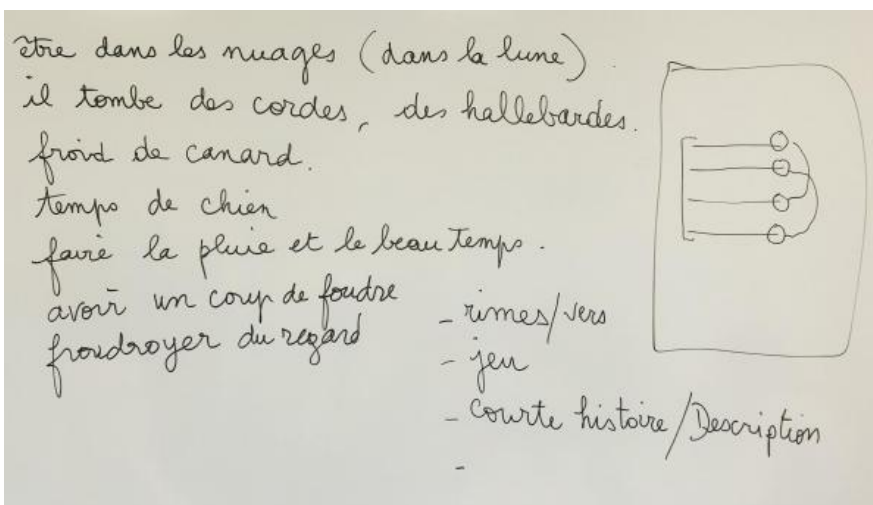 être dans les nuages (dans la lune).
il tombe des cordes, des hallebardes.
froid de canard.
temps de chien
faire la pluie et le beau temps.
avoir un coup de foudre
froudroyer du regard
- rimes/vers
- jeu
- courte histoire/Description
-